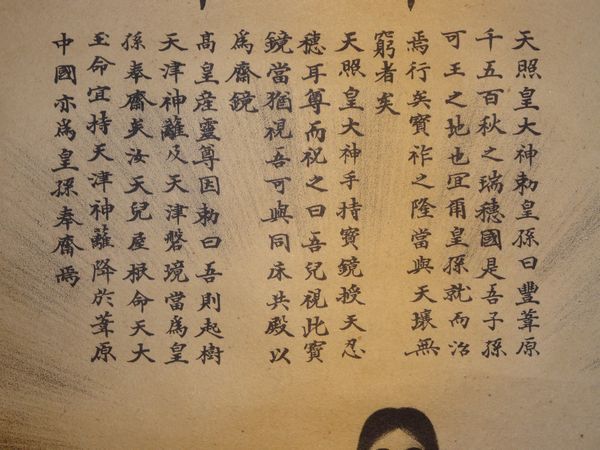 天照皇大神勅皇孫曰豐葦原
千五百秋之瑞穗國是吾子孫
可王之地也宜爾皇孫就而治
焉行矣寶祚之隆當與天壤無
窮者矣
天照皇大神手持寶鏡授天忍
穗耳尊而祝之曰吾兒視此寶
鏡當猶視吾可與同床共殿以
爲齋鏡
高皇產靈尊因勅曰吾則起樹
天津神籬及天津磐境當爲皇
孫奉齋矣汝天兒屋根命天太
玉命宜持天津神籬降於葦原
中國亦爲皇孫奉齋焉